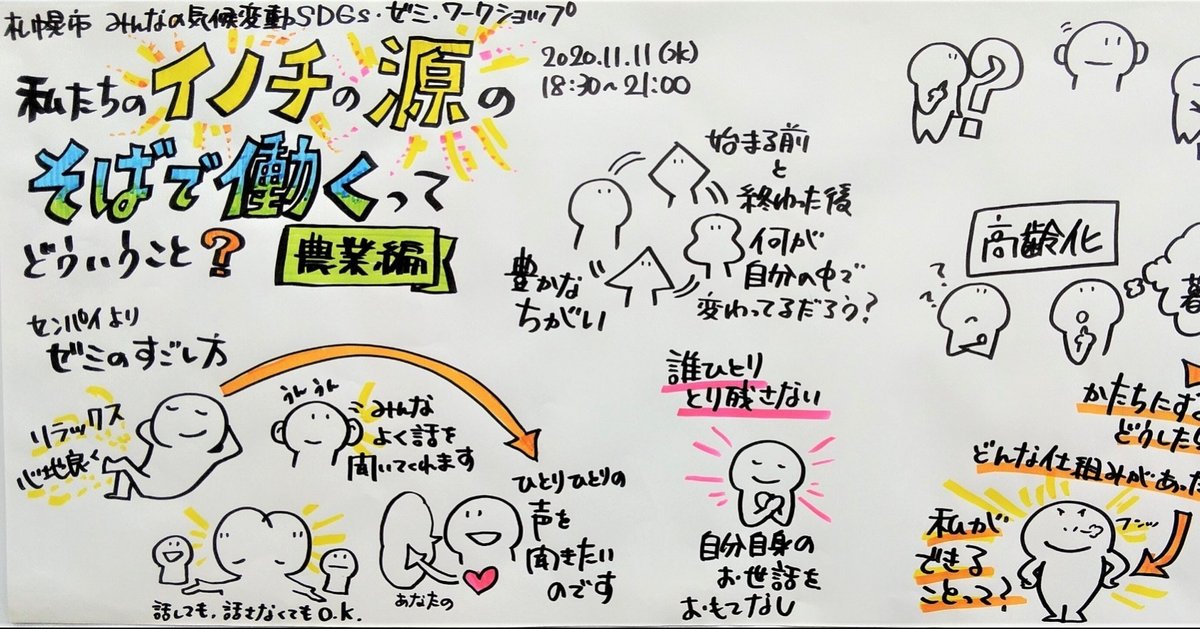 札幌市 みんなの気候変動SDGs・ゼミ・ワークショップ
私たちのイノチの源の
そばで働くって
どういうこと?
農業編
2020.11.11(水)
18:30〜21:00
始まる前
と
終わった後
何が
自分の中で
変わってるだろう?
豊かな
ちがい
センパイより
ゼミのすごし方
リラックス
心地良く
うんうん
みんな
よく話を
聞いてくれます
話しても,話さなくてもO.K.
あなたの
ひとりひとりの
声を
聞きたい
のです
誰ひとり
とり残さない
自分自身の
お世話を
おもてなし
?
高齢化
??
かたちにす
どうした
どんな仕組みがあった
私が
できる
ことって?
フンッ